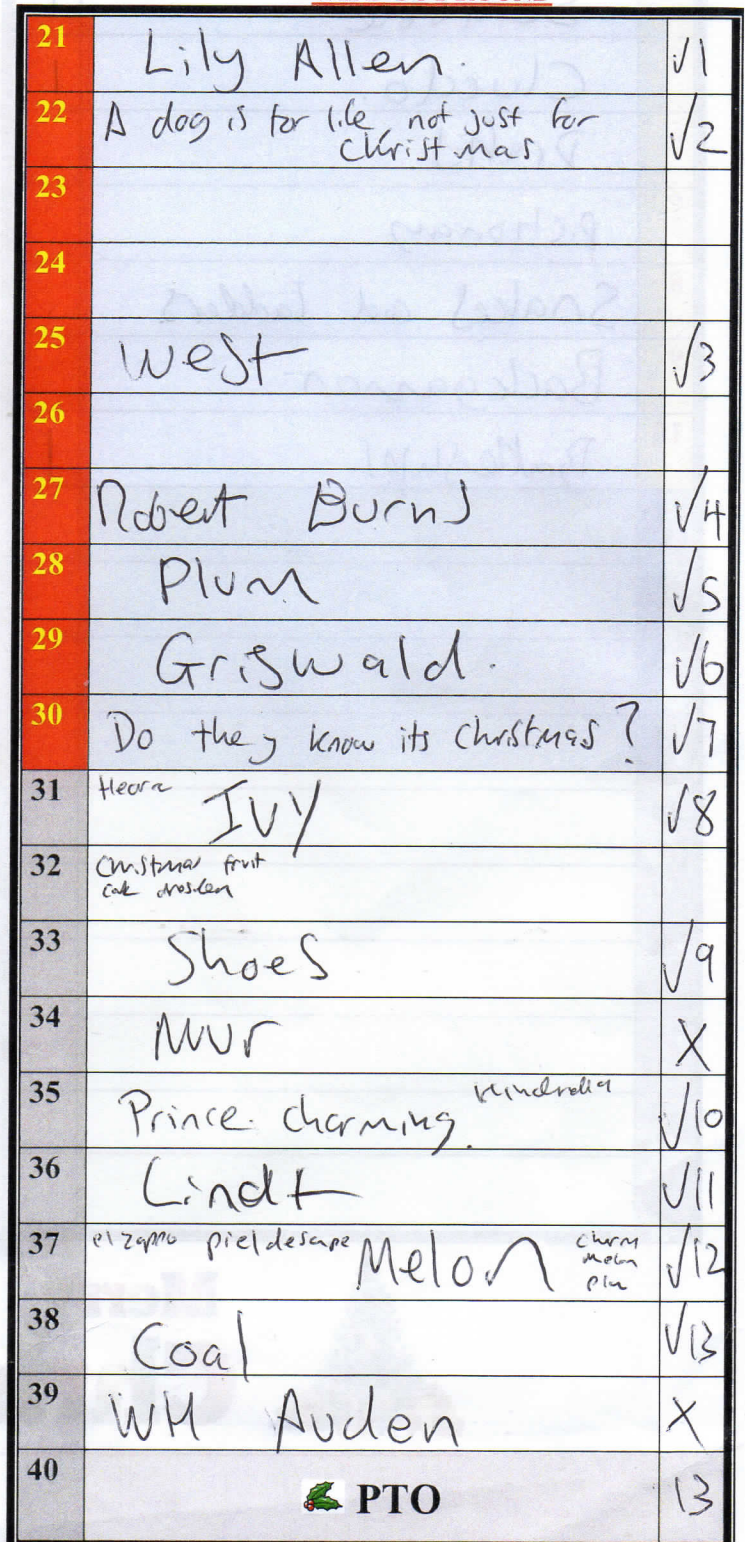 21 Lily Allen. √1
22 A dog is for life, not just for √2
Christmas
23
24
25 West √3
26
27 Robert Burns √4
28 Plum √5
29 Griswald. √6
30 Do they know its Christmas? √7
31 Ivy √8
32 Christmas fruit
cake
33 Shoes √9
34 X
35 Prince charming. √10
36 Lindt √11
37 Melon √12
melon
38 Coal √13
39 WH Auden X
40 PTO 13